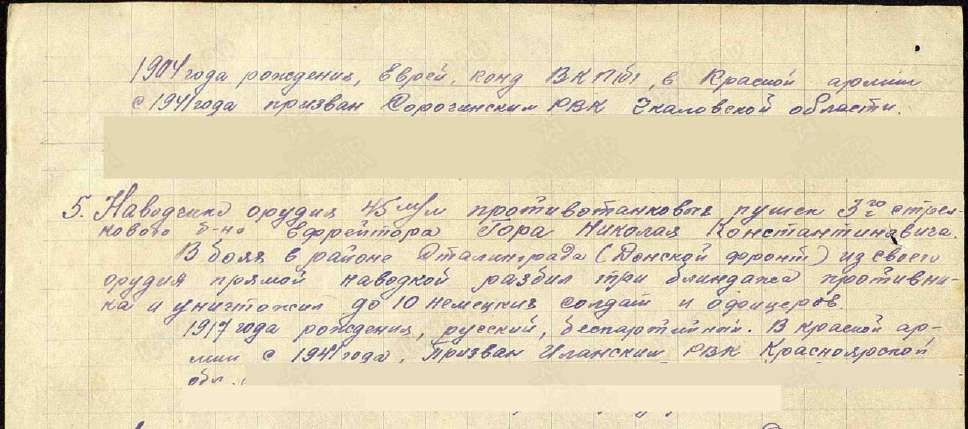 1904 года рождения, Еврей, конд ВКП(б), в Красной армии
с 1941 года призван Сорочинским РВК Чкаловской области.
5. Наводчика орудия 45 м/м противотанковых пушек 3го стрел-
кового б-на Ефрейтора Гора Николая Константиновича.
В боях в районе Сталинграда (Донской фронт) из своего
орудия прямой наводкой разбил три блиндажа противни-
ка и уничтожил до 10 немецких солдат и офицеров.
1917 года рождения, русский, беспартийный. В красной ар-
мии с 1941 года. Призван Иланским РВК Красноярской
обл.